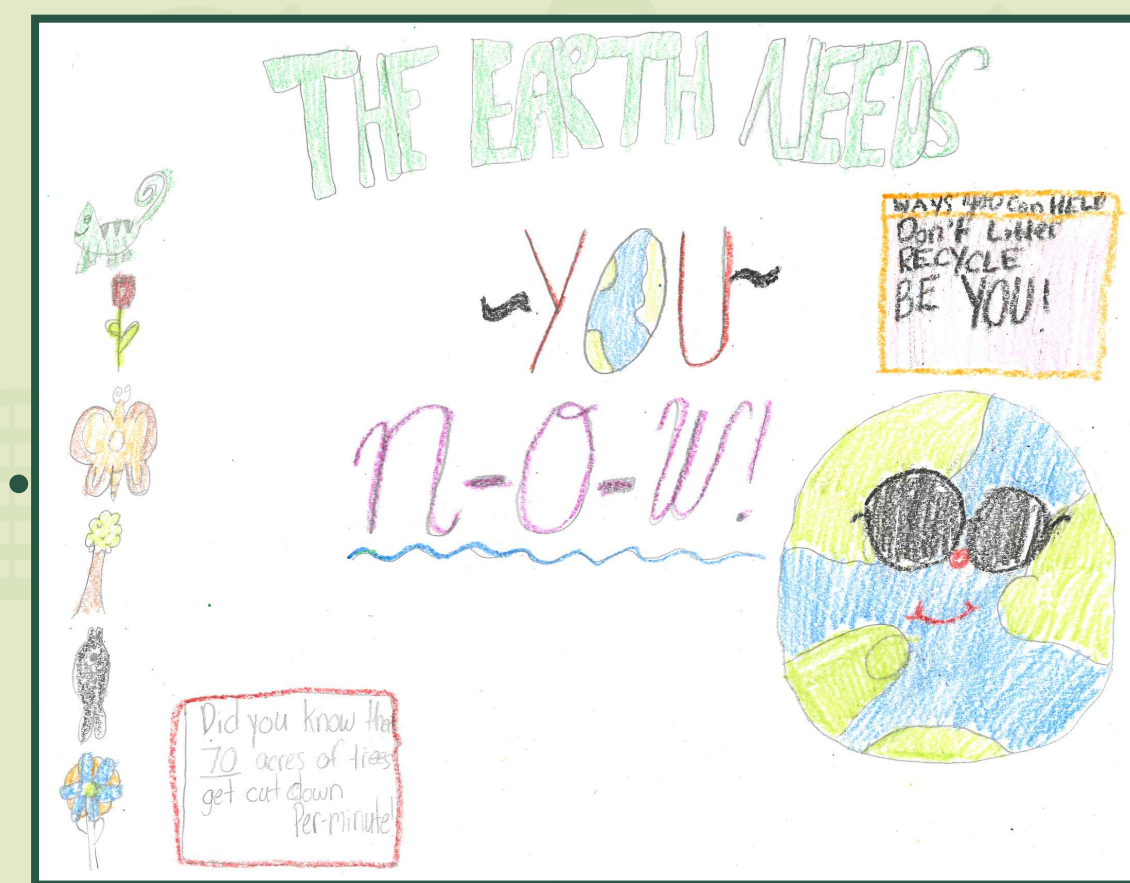 THE EARTH NEEDS
~YOU~
N-O-W!
WAYS YOU Can HELP
Don't Litter
RECYCLE
BE YOU!
Did you know that
70 acres of trees
get cut down
Per-minute!